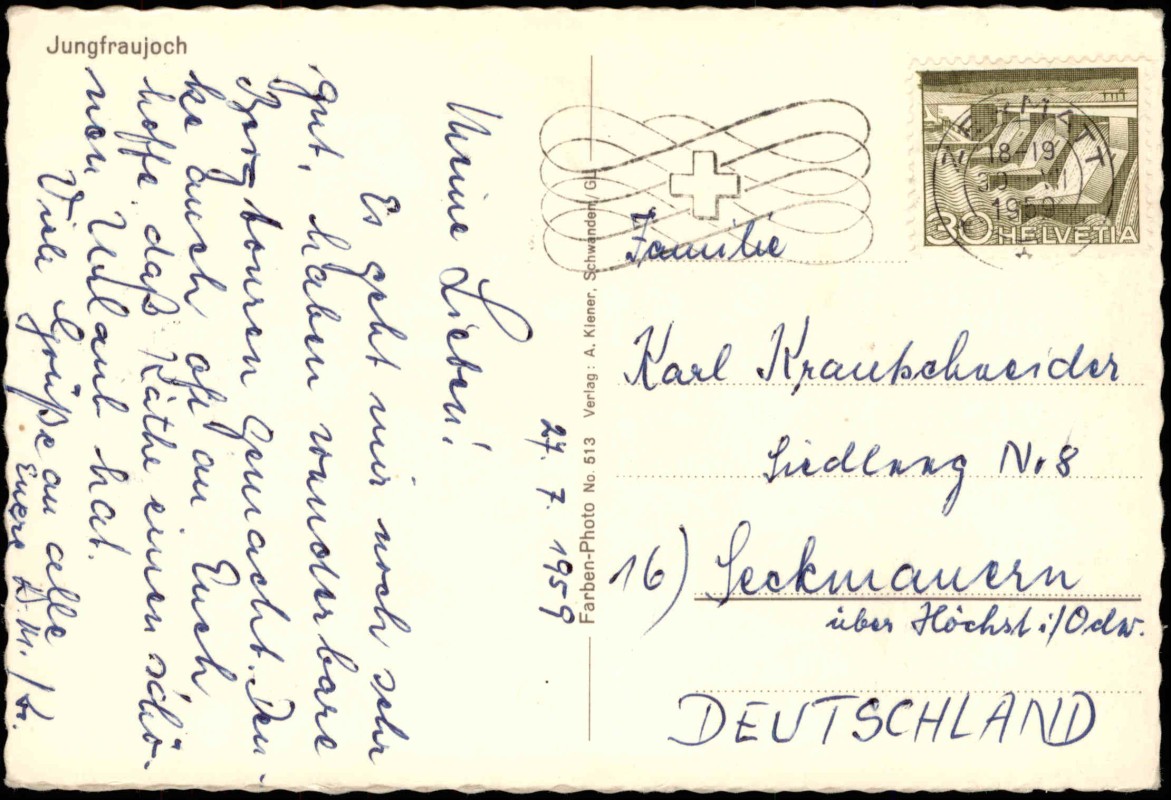 Jungfraujoch
27. 7. 1959
Meine Lieben!
Es geht mir noch sehr
gut, haben wunderbare
Bergtouren gemacht. Den-
ke auch oft an Euch
hoffe, daß Käthe einen schö-
nen Urlaub hat.
Viele Grüße an alle
Eure
Farben-Photo No. 513 Verlag: A. Kiener, Schwanden/GL
ZERMATT
18-19
30
1959
30 HELVETIA
Familie
Karl Krautschneider
Siedlung Nr 8
16) Seckmauern
über Höchst i/Odw.
DEUTSCHLAND